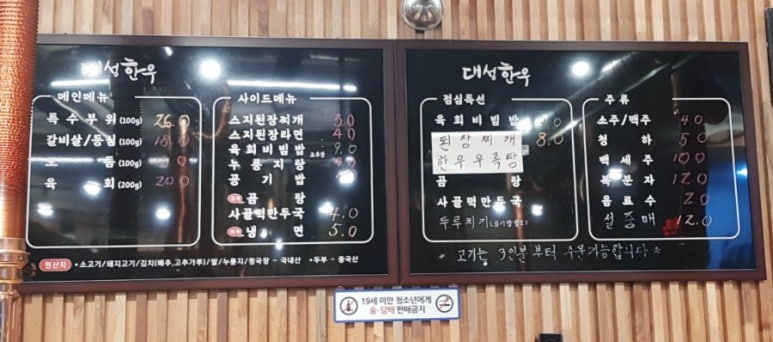 대성한우
메인메뉴
특수부위 (100g) 26.0
갈비살/등심 (100g)
모둠
육회 (200g) 20.0
사이드메뉴
스지된장찌개 3.0
스지된장라면 4.0
육회비빔밥 9.0
누룽지탕
공기밥
곰탕
사골떡만두국 4.0
냉면 5.0
원산지 •소고기/돼지고기/김치(배추,고추가루)/쌀/누룽지/청국장 - 국내산 •두부 - 중국산
대성한우
점심특선
육회비빔밥
된장찌개 8.0
한우우족탕
곰탕
사골떡만두국
두루치기 (공기밥별도)
주류
소주/맥주 4.0
청하 5.0
백세주 10.0
복분자 12.0
음료수 2.0
설중매 12.0
* 고기는 3인분부터 주문가능합니다 *
19세 미만 청소년에게
술·담배 판매금지